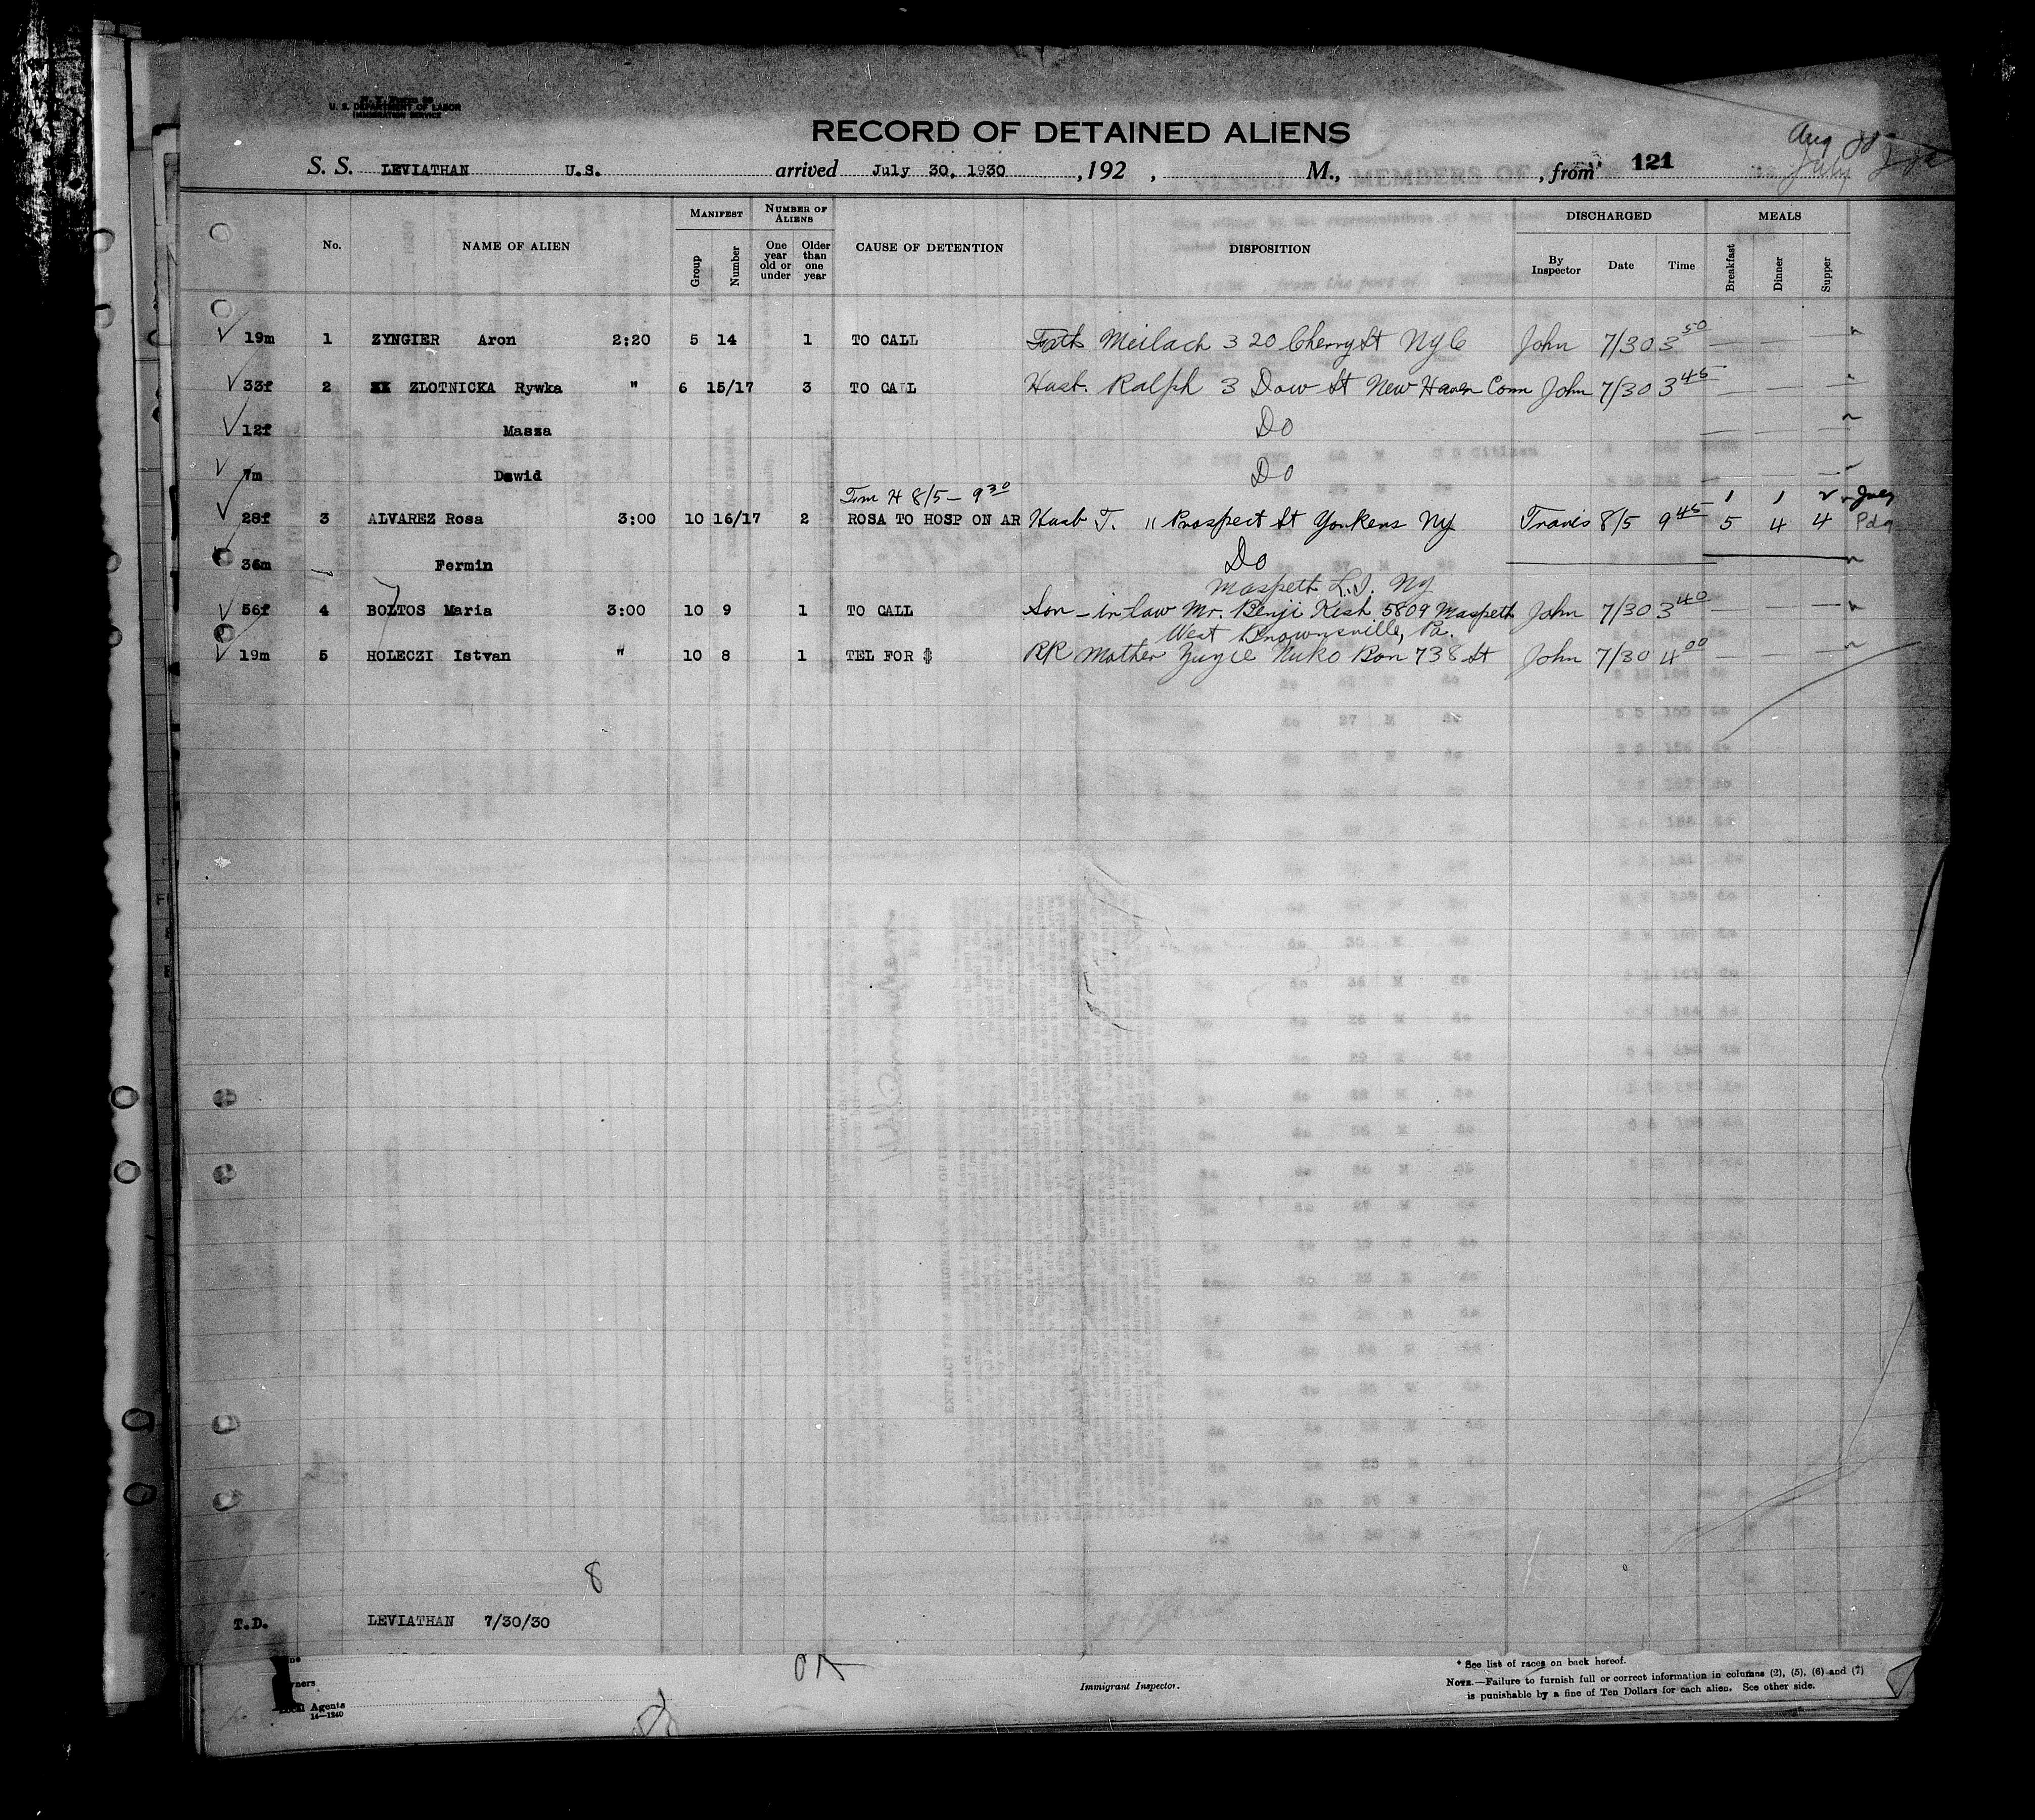 U. S. DEPARTMENT OF LABOR
IMMIGRATION SERVICE
RECORD OF DETAINED ALIENS
Aug
July
S. S. LEVIATHAN U.S. arrived July 30, 1930 , 192 , M., , from 121
No. NAME OF ALIEN MANIFEST Group Number NUMBER OF ALIENS One year old or under Older than one year CAUSE OF DETENTION DISPOSITION DISCHARGED By Inspector Date Time MEALS Breakfast Dinner Supper
19m 1 ZYNGIER Aron 2:20 5 14 1 TO CALL Fath Meilach 320 Cherry St NYC John 7/30 3 50 — — —
33f 2 ZLOTNICKA Rywka " 6 15/17 3 TO CALL Husb. Ralph 3 Dow St New Haven Conn John 7/30 3 45 — — —
12f Masza Do — — —
7m Dawid Do — — —
Tem H 8/5 – 9 30 1 1 2 July
28f 3 ALVAREZ Rosa 3:00 10 16/17 2 ROSA TO HOSP ON AR Husb T. 11 Prospect St Yonkers Ny Travis 8/5 9 45 5 4 4 Pdq
36m Fermin Do
Maspeth L.I. Ny
56f 4 BOLTOS Maria 3:00 10 9 1 TO CALL Son-in-law Mr. Benji Kish 5809 Maspeth John 7/30 3 40 — — —
West Brownsville, Pa.
19m 5 HOLECZI Istvan " 10 8 1 TEL FOR $ RR Mother Nuko Box 738 St John 7/30 4 00 — — —
8
T.D. LEVIATHAN 7/30/30
OK
Immigrant Inspector.
* See list of races on back hereof.
NOTE.—Failure to furnish full or correct information in columns (2), (5), (6) and (7)
is punishable by a fine of Ten Dollars for each alien. See other side.
Local Agents
14—1240